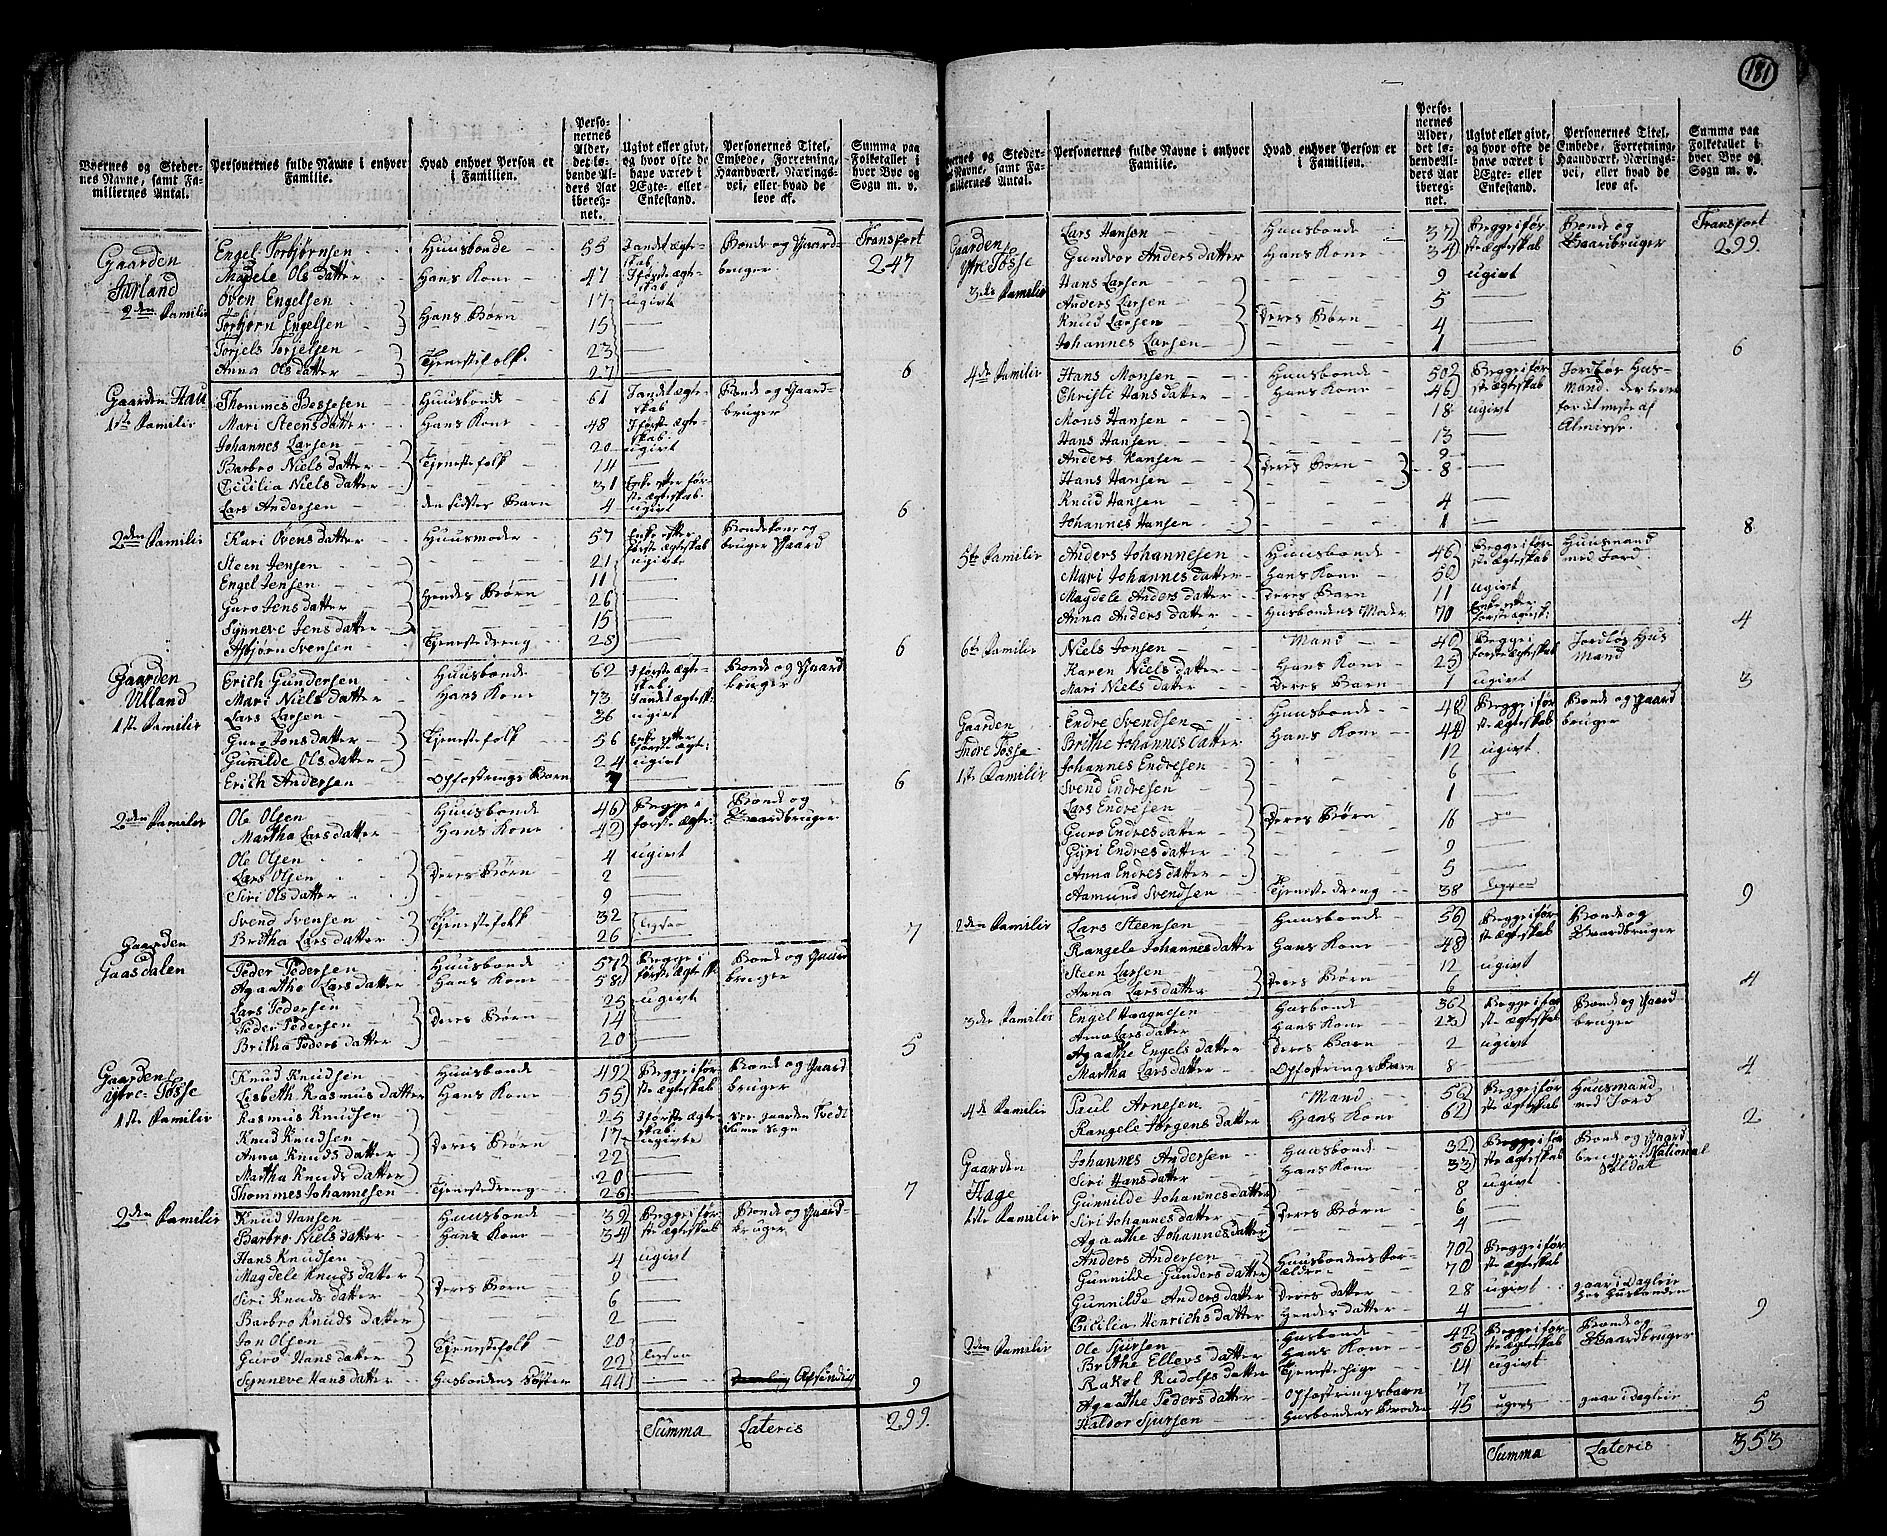 181
Byernes og Steder-
nes Navne, samt Fa-
miliernes Antal.
Personernes fulde Navne i enhver
Familie.
Hvad enhver Person er
i Familien.
Perso-
nernes
Alder,
det le-
bende Al-
ders Aar
ibereg-
net.
Ugivt eller givt,
og hvor ofte de
have været i
Ægte- eller
Enkestand.
Personernes Titel,
Embede, Forretning,
Haandværk, Nærings-
vei, eller hvad de
leve af.
Summa paa
Folketallet i
hver Bye og
Sogn m. v.
Transport
247
Gaarden
Engel Torbjørnsen Huusbonde 55 I andt ægte-
skab Bonde og Gaard-
bruger
Magdele Ols datter Hans Kone 47 I første ægte-
skab
2den Familie
Øven Engelsen 17 ugivt
Torbjørn Engelsen Hans Børn 15
Torjels Torjelsen 23
Anna Ols datter Tjenestefolk 27
6
Gaarden Hau
1ste Familie
Thommes Bessesen Huusbonde 61 I andt ægte-
skab Bonde og Gaard-
bruger
Mari Steens datter Hans Kone 48 I første ægte-
skab
Johannes Larsen 20 ugivt
Barbro Niels datter Tjenestefolk 14
Cicilia Niels datter 31 Enke efter før-
ste ægteskab
Lars Andersen den sidstes Barn 4 ugivt
6
2den Familie
Kari Øvens datter Huusmoder 57 Enke efter
første ægteskab Bondekone og
bruger Gaard
Steen Jensen 21 ugivte
Engel Jensen 11
Guro Jens datter Hendes Børn 26
Synneve Jens datter 15
Asbjørn Svensen Tjenestedreng 25
6
Gaarden
Ulland
1ste Familie
Erich Gundersen Huusbonde 62 I første ægte-
skab Bonde og Gaard
bruger
Mari Niels datter Hans Kone 73 I andt ægtesk:
Lars Larsen 36 ugivt
Guro Jons datter Tjenestefolk 56 Enke efter
første ægt:
Gunilde Ols datter 24 ugivt
Erich Andersen Opfostrings Barn 7
6
2den Familie
Ole Olsen Huusbonde 46 Begge i
første ægte: Bonde og
Gaardbruger
Martha Lars datter Hans Kone 42
Ole Olsen 4 ugivt
Lars Olsen Deres Børn 2
Siri Ols datter 9
Svend Svensen Tjenestefolk 32
Britha Lars datter 26 ligesaa
7
Gaarden
Gaasdalen
Peder Pedersen Huusbonde 57 Begge i
første ægtesk: Bonde og Gaard
bruger
Agaathe Lars datter Hans Kone 58
Lars Pedersen 25 ugivt
Peder Pedersen Deres Børn 14
Britha Peders datter 20
5
Gaarden
Ytre Tosse
1ste Familie
Knud Knudsen Huusbonde 49 Begge i før-
ste ægteskab Bonde og Gaard
bruger
Lisbeth Rasmus datter Hans Kone 55
Rasmus Knudsen 25 I første ægte-
skab
Knud Knudsen 17 ugivte
Anna Knuds datter Deres Børn 22
Martha Knuds datter 20
Thommes Johannesen Tjenestedreng 26
7
2den Familie
Knud Hansen Huusbonde 39 Begge i før-
ste ægteskab Bonde og Gaard-
bruger
Barbro Niels datter Hans Kone 34
Hans Knudsen 4 ugivt
Magdele Knuds datter 9
Siri Knuds datter Deres Børn 6
Barbro Knuds datter 2
Jon Olsen 20
Guro Hans datter Tjenestefolk 22 ligesaa
Synneve Hans datter Husbondens Søster 44
9
Summa Lateris 299.
Byernes og Steder-
nes Navne, samt Fa-
miliernes Antal.
Personernes fulde Navne i enhver
Familie.
Hvad enhver Person er
i Familien.
Perso-
nernes
Alder,
det le-
bende Al-
ders Aar
ibereg-
net.
Ugivt eller givt,
og hvor ofte de
have været i
Ægte- eller
Enkestand.
Personernes Titel,
Embede, Forretning,
Haandværk, Nærings-
vei, eller hvad de
leve af.
Summa paa
Folketallet i
hver Bye og
Sogn m. v.
Transport
299.
Gaarden
Ytre Tosse
3die Familie
Lars Hansen Huusbonde 37 Begge i før-
ste ægteskab Bonde og
Gaardbruger
Gundvor Anders datter Hans Kone 34
Hans Larsen 9 ugivt
Anders Larsen 5
Knud Larsen Deres Børn 4
Johannes Larsen 1
6
4de Familie
Hans Monsen Huusbonde 50 Begge i før-
ste ægteskab Jordløs Hus-
Mand. der lever
for ut meste af
Almisse.
Christi Hans datter Hans Kone 46
Mons Hansen 18 ugivt
Hans Hansen 13
Anders Hansen Deres Børn 9
Hans Hansen 8
Knud Hansen 4
Johannes Hansen 1
8
5te Familie
Anders Johannesen Huusbonde 46 Begge i før-
ste ægteskab Huusmand
med Jord
Mari Johannes datter Hans Kone 50
Magdele Anders datter Deres Barn 11 ugivt
Anna Anders datter Husbondens Moder 70 Enke efter
første ægtesk:
4
6te Familie
Niels Jonsen Mand 40 Begge i
første ægteskab Jordløs Hus
Mand
Karen Niels datter Hans Kone 25
Mari Niels datter Deres Barn 1 ugivt
3
Gaarden
Indre Tosse
1ste Familie
Endre Svendsen Huusbonde 48 Begge i før-
ste ægteskab Bonde og Gaard
bruger
Brithe Johannes datter Hans Kone 44
Johannes Endresen 12 ugivt
Svend Endresen 6
Lars Endresen 1
Guro Endres datter Deres Børn 16 do
Gyri Endres datter 9
Anna Endres datter 5
Aamund Svendsen Tjenestedreng 38
9
2den Familie
Lars Steensen Huusbonde 56 Begge i før-
ste ægteskab Bonde og
Gaardbruger
Rangele Johannes datter Hans Kone 48
Steen Larsen 12 ugivt
Anna Lars datter Deres Børn 6
4
3die Familie
Engel Haagnesen Husbonde 36 Begge i før-
ste ægteskab Bonde og Gaard
bruger
Anna Lars datter Hans Kone 23
Agaathe Engels datter Deres Barn 2 ugivt
Martha Lars datter Opfostrings Barn 8
4
4de Familie
Paul Arnesen Mand 56 Begge i før-
ste ægteskab Huusmand
med Jord
Rangele Jørgens datter Hans Kone 62
2
Gaarden
Hage
1ste Familie
Johannes Andersen Huusbonde 32 Begge i før-
ste ægteskab Bonde og Gaard
bruger: National
Soldat
Siri Hans datter Hans Kone 33
Gunnilde Johannes datter 8 ugivt
Siri Johannes datter Deres Børn 6
Agaathe Johannes datter 4
Anders Andersen Huusbondens For-
ældre 70 Begge i før-
ste ægteskab
Gunnilde Gunders datter 70
Gunnilde Anders datter Deres datter 28 ugivt gaar i Dagleie
hos Husbonden
Cicilia Henrichs datter Hendes datter 4
9
2den Familie
Ole Sjursen Husbonde 42 Begge i før-
ste ægteskab Bonde og
Gaardbruger
Brithe Ellers datter Hans Kone 56
Rakel Rudolfs datter Tjenestepige 14 ugivt
Agaathe Peders datter Opfostringsbarn 7
Haldor Sjursen Husbondens Broder 45 ugivt gaar i Dagleie
5
Summa Lateris 353